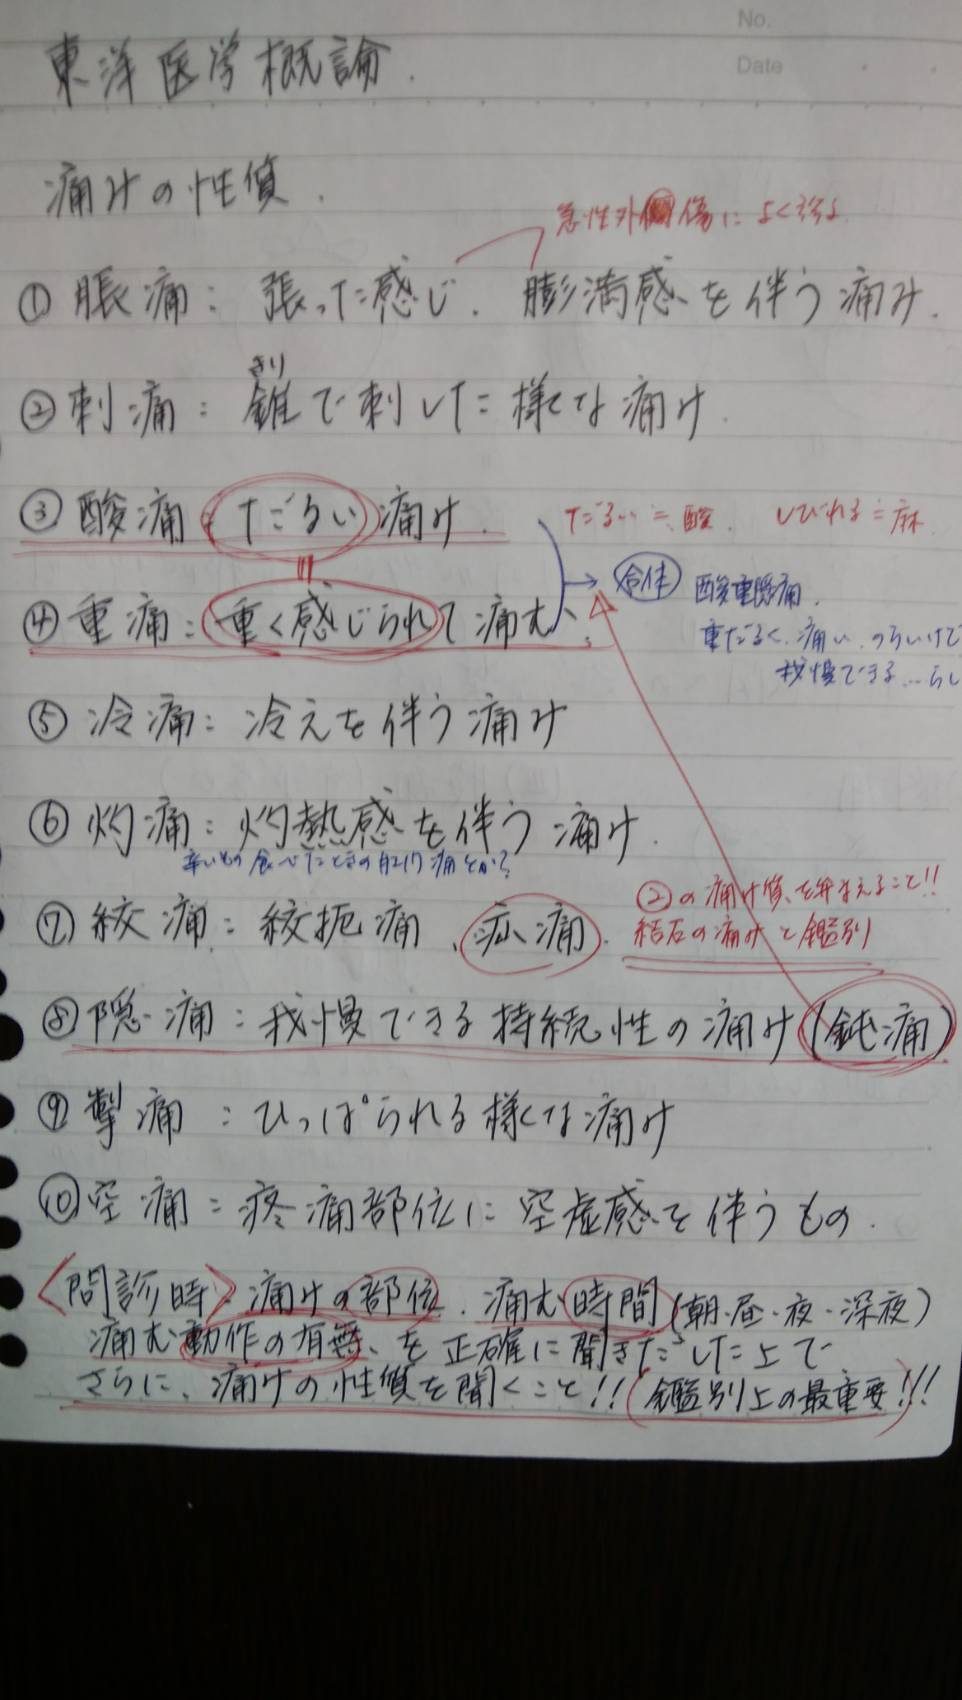 No.
Date
東洋医学概論.
痛みの性質.
急性外傷によく診る
①脹痛: 張った感じ. 膨満感を伴う痛み.
きり
②刺痛: 錐で刺した様な痛み.
③酸痛: だるい痛み.
だるい=酸. しびれる=麻
④重痛: 重く感じられて痛む.
合体 酸重隠痛.
重だるく、痛い、つらいけど
我慢できる…らし
⑤冷痛: 冷えを伴う痛み
⑥灼痛: 灼熱感を伴う痛み.
辛いもの食べたときの肛門痛とか?
②の痛み質を弁まえること!!
⑦絞痛: 絞扼痛、疝痛.
結石の痛みと鑑別
⑧隠痛: 我慢できる持続性の痛み(鈍痛)
⑨掣痛: ひっぱられる様な痛み
⑩空痛: 疼痛部位に空虚感を伴うもの.
<問診時> 痛みの部位. 痛む時間(朝・昼・夜・深夜)
痛む動作の有無、を正確に聞きだした上で
さらに、痛みの性質を聞くこと!!(鑑別上の最重要)!!!